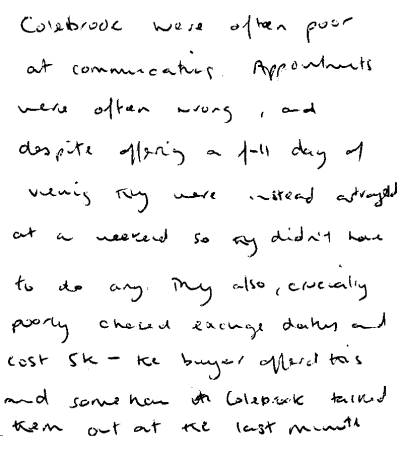 Colebrook were often poor
at communicating. Appointments
were often wrong, and
despite offering a full day of
viewing they were instead arranged
at a weekend so they didn't have
to do any. They also, crucially
poorly chased exchange dates and
cost 5k - the buyer offered this
and somehow Colebrook talked
them out at the last minute